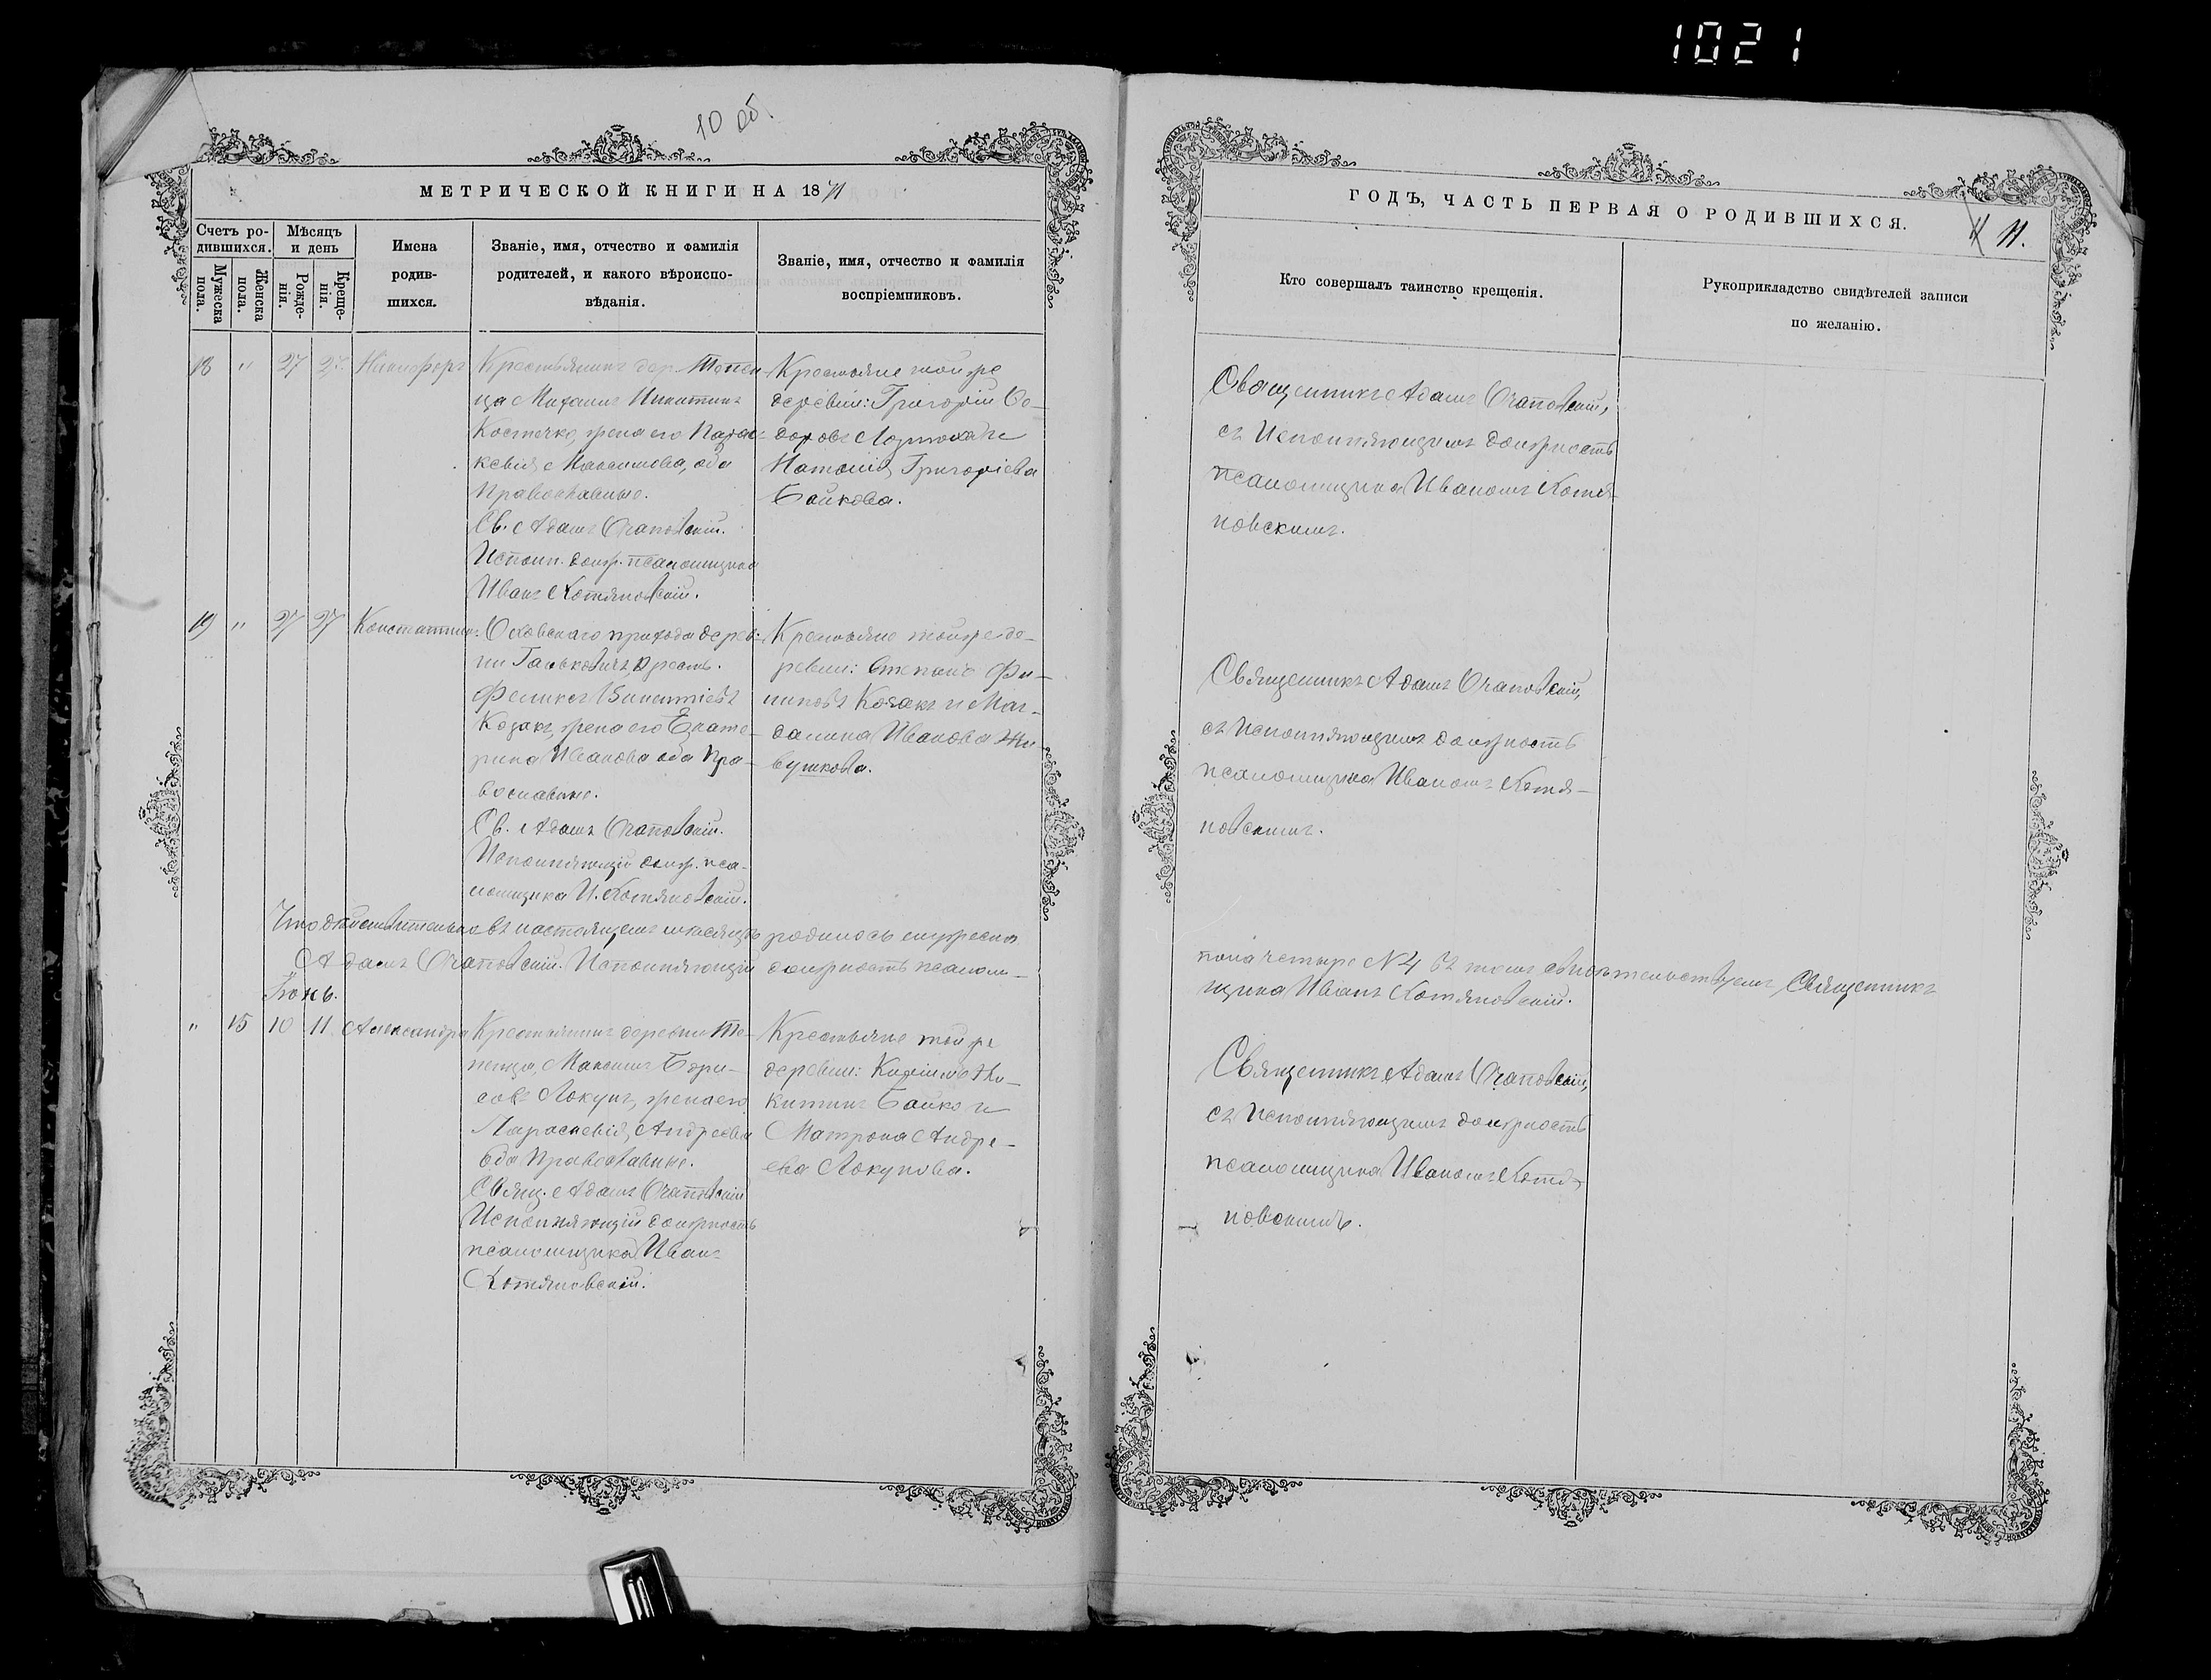 1021
10 об.
МЕТРИЧЕСКОЙ КНИГИ НА 1871
Счетъ ро-
дившихся.
Мужеска пола.
Женска пола.
Мѣсяцъ
и день
Рожде-
нія.
Креще-
нія.
Имена
родив-
шихся.
Званіе, имя, отчество и фамилія
родителей, и какого вѣроиспо-
вѣданія.
Званіе, имя, отчество и фамилія
воспріемниковъ.
18 " 27 27 Никифоръ
Крестьянинъ дер. Тепен
ца Михаилъ Никитинъ
Костечко, жена его Парас
кевія Максимова, оба
Православные.
Св. Адамъ
Исполн. долж. псаломщика
Иванъ Котяновскій.
Крестьяне той же
деревни: Григорій Ѳе-
доровъ и
Наталія Григоріева
Бойкова.
19 " 27 27 Константинъ
Оховскаго прихода дерев-
ни Галькович крест.
Феликсъ Викентіевъ
Козакъ, жена его Екате-
рина Иванова оба Пра-
вославные.
Св. Адамъ
Исполняющій долж. пса-
ломщика И. Котяновскій.
Крестьяне той же де-
ревни: Степанъ Фи-
липовъ Козакъ и Маг-
далина Иванова
Что дѣйствительно въ настоящемъ мѣсяцѣ родилось мужеска
Адамъ Исполняющій должность псалом-
Іюнь.
" 15 10 11. Александра
Крестьянинъ деревни Те-
пенца, Максимъ Бори-
совъ Локунъ, жена его
Параскевія Андреева
оба Православные.
Свящ. Адамъ
Исполняющій должность
псаломщика Иванъ
Котяновскій.
Крестьяне той же
деревни: Ни-
китинъ Бойко и
Матрона Андре-
ева Локунова.
ГОДЪ, ЧАСТЬ ПЕРВАЯ О РОДИВШИХСЯ.
11.
Кто совершалъ таинство крещенія.
Рукоприкладство свидѣтелей записи
по желанію.
Священникъ Адамъ
съ Исполняющимъ должность
псаломщика Иваномъ Котя-
новскимъ.
Священникъ Адамъ
съ Исполняющимъ должность
псаломщика Иваномъ Котя-
новскимъ.
пола четыре № 4 въ томъ свидѣтельствуемъ Священникъ
щика Иванъ Котяновскій.
Священникъ Адамъ
съ Исполняющимъ должность
псаломщика Иваномъ Котя-
новскимъ.